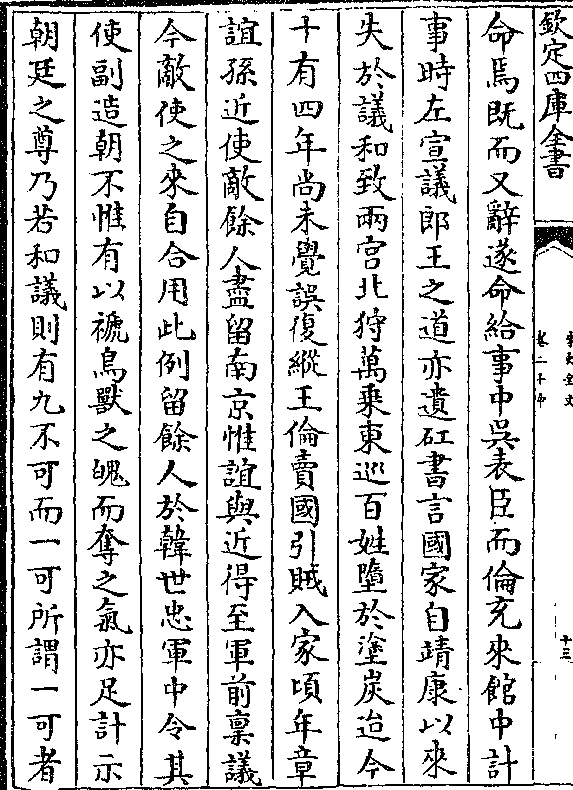 欽定四庫全書
命焉既而又辭遂命給事中吳表臣而倫充來館中計
事時左宣議郎王之道亦遺矼書言國家自靖康以來
失於議和致兩宮北狩萬乘東巡百姓墮於塗炭迨今
十有四年尚未覺誤復縱王倫賣國引賊入家頃年章
誼孫近使敵餘人盡留南京惟誼與近得至軍前稟議
今敵使之來自合用此例留餘人於韓世忠軍中令其
使副造朝不惟有以褫鳥獸之魄而奪之氣亦足計示
朝廷之尊乃若和議則有九不可而一可所謂一可者
十三